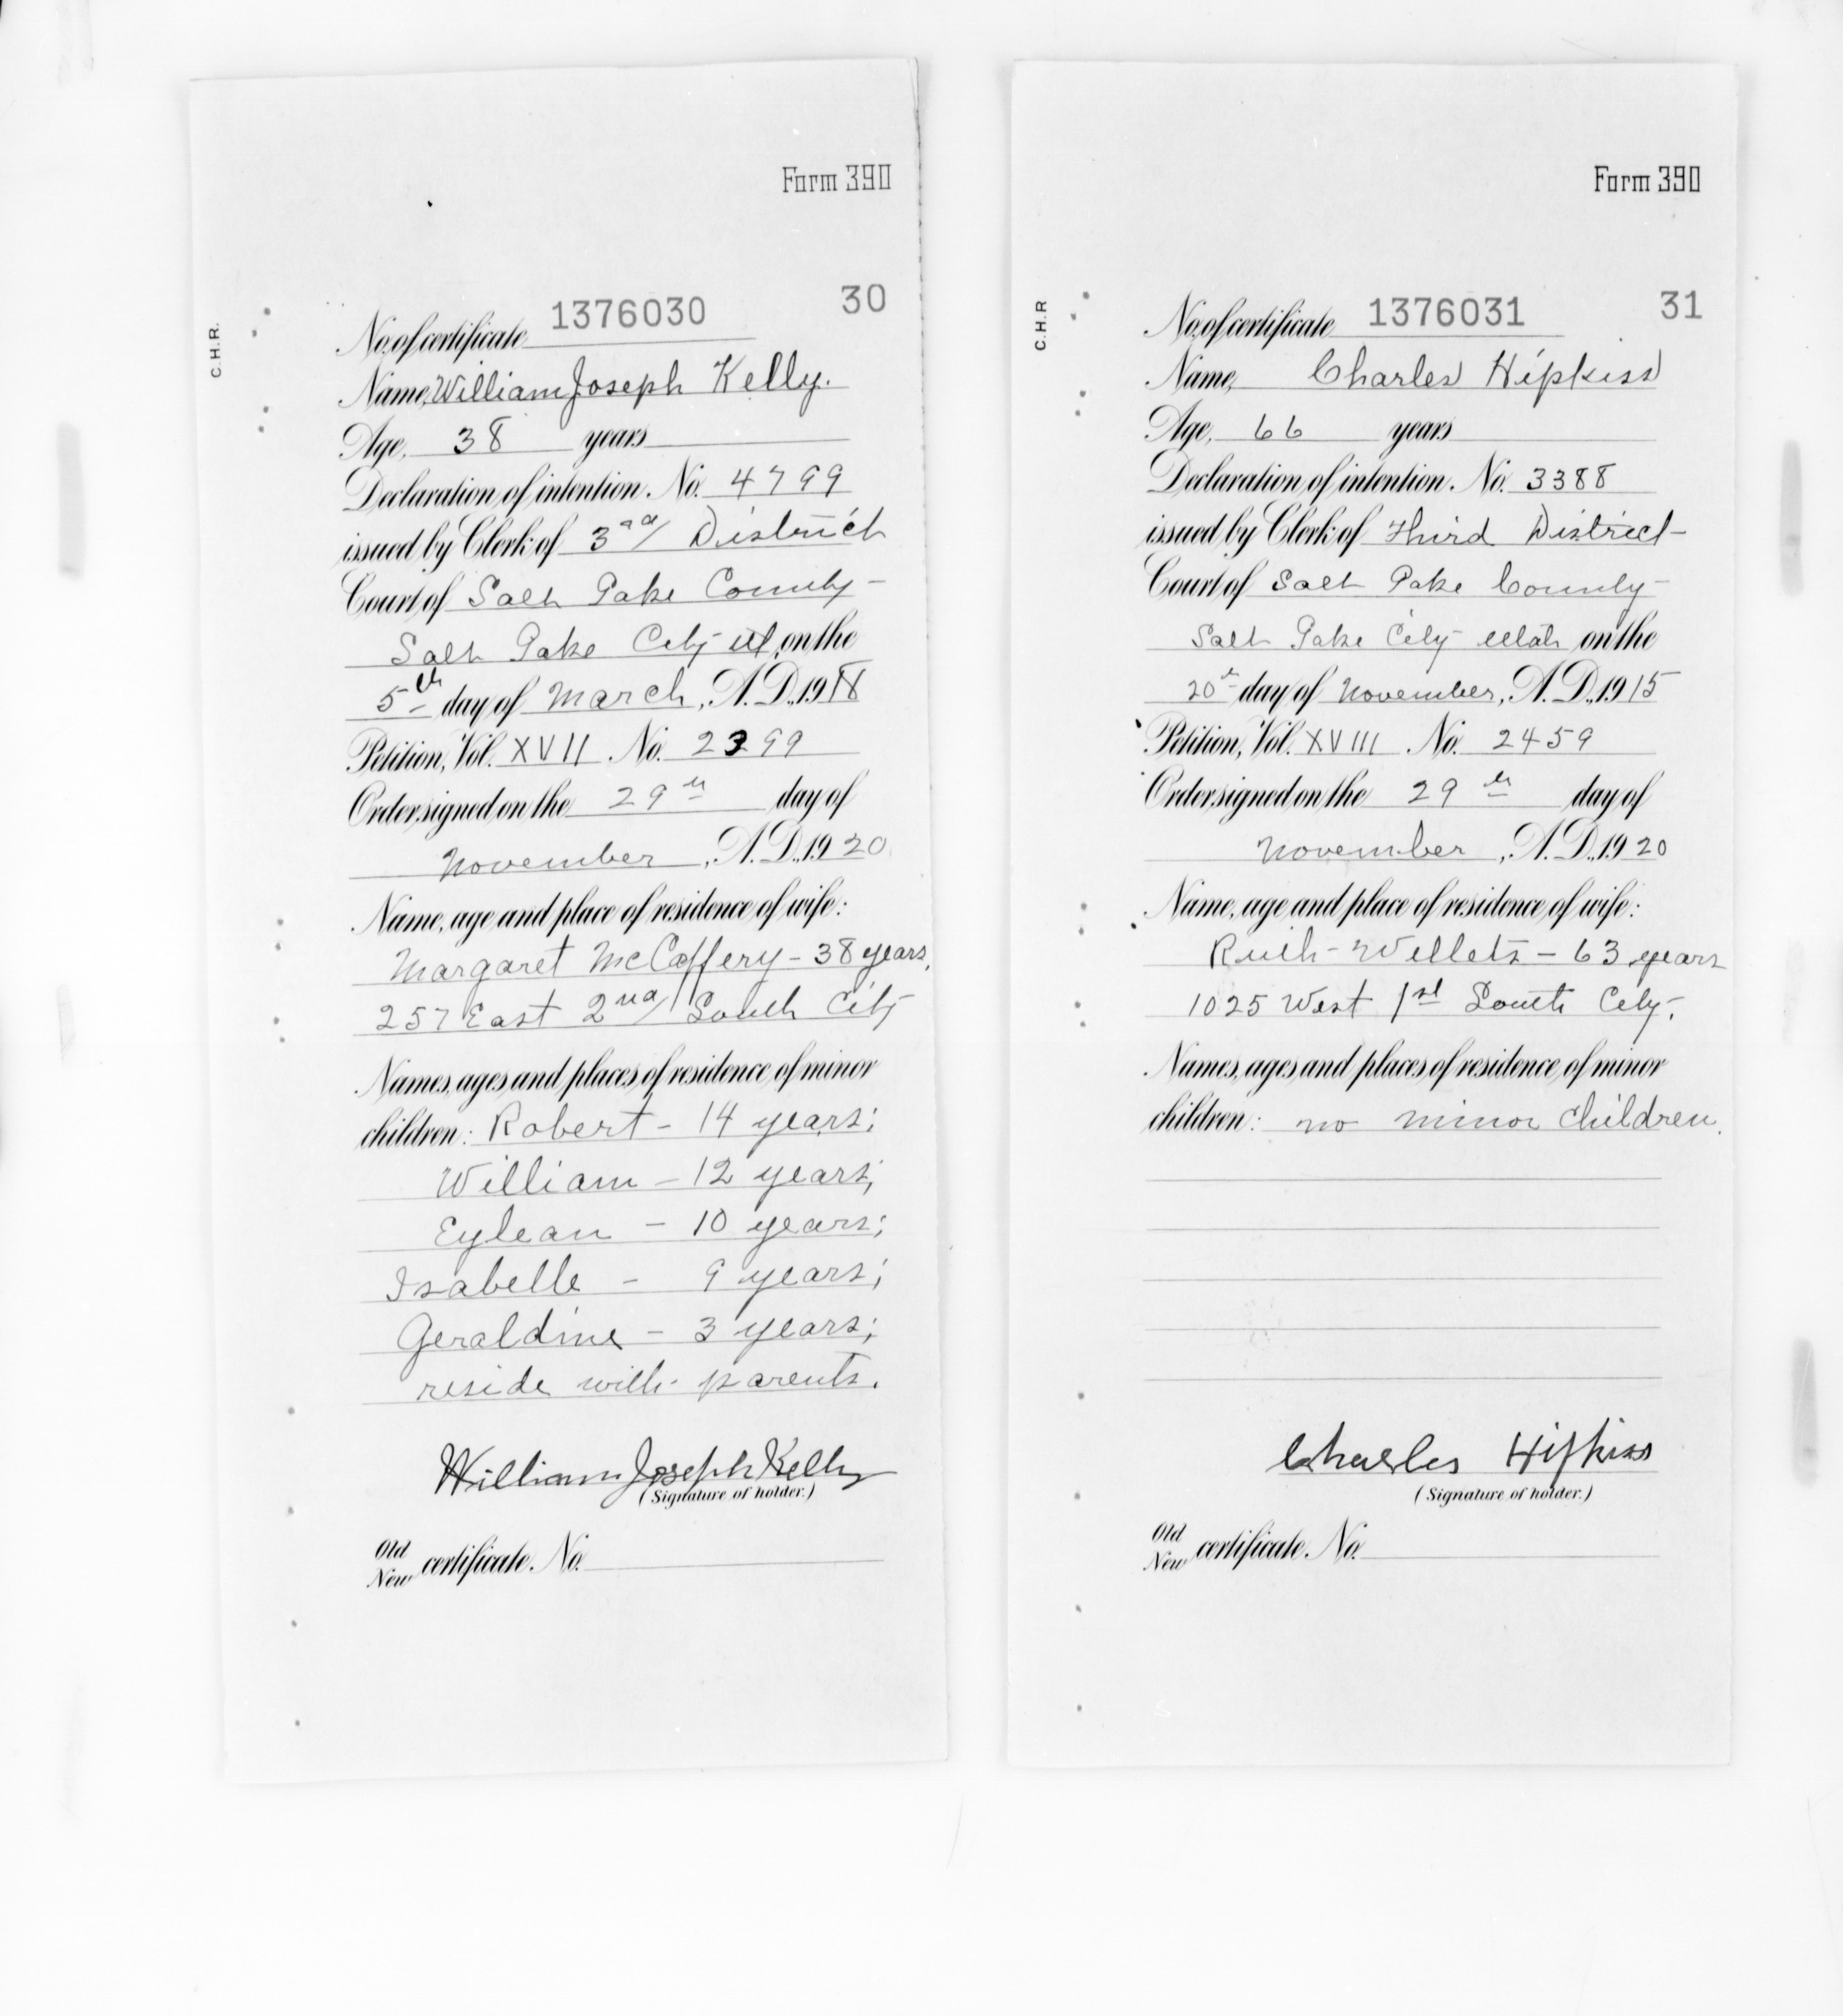 Form 390
C.H.R.
30
No. of certificate 1376030
Name, William Joseph Kelly.
Age, 38 years
Declaration of intention, No. 4799
issued by Clerk of 3rd District
Court of Salt Lake County -
Salt Lake City Ut, on the
5th day of March, A.D., 1918
Petition, Vol. XVII No. 2399
Order signed on the 29th day of
November, A.D., 1920
Name, age and place of residence of wife:
Margaret McCaffery - 38 years,
257 East 2nd South City
Names, ages and places of residence of minor
children: Robert - 14 years;
William - 12 years;
Eylean - 10 years;
Isabelle - 9 years;
Geraldine - 3 years;
reside with parents.
William Joseph Kelly
(Signature of holder.)
Old
New certificate, No.
Form 390
C.H.R
31
No. of certificate 1376031
Name, Charles Hipkiss
Age, 66 years
Declaration of intention, No. 3388
issued by Clerk of Third District -
Court of Salt Lake County -
Salt Lake City Utah on the
20th day of November, A.D., 1915
Petition, Vol. XVIII No. 2459
Order signed on the 29th day of
November, A.D., 1920
Name, age and place of residence of wife:
Ruth - Willets - 63 years
1025 West 1st South City.
Names, ages and places of residence of minor
children: no minor children.
Charles Hipkiss
(Signature of holder.)
Old
New certificate, No.